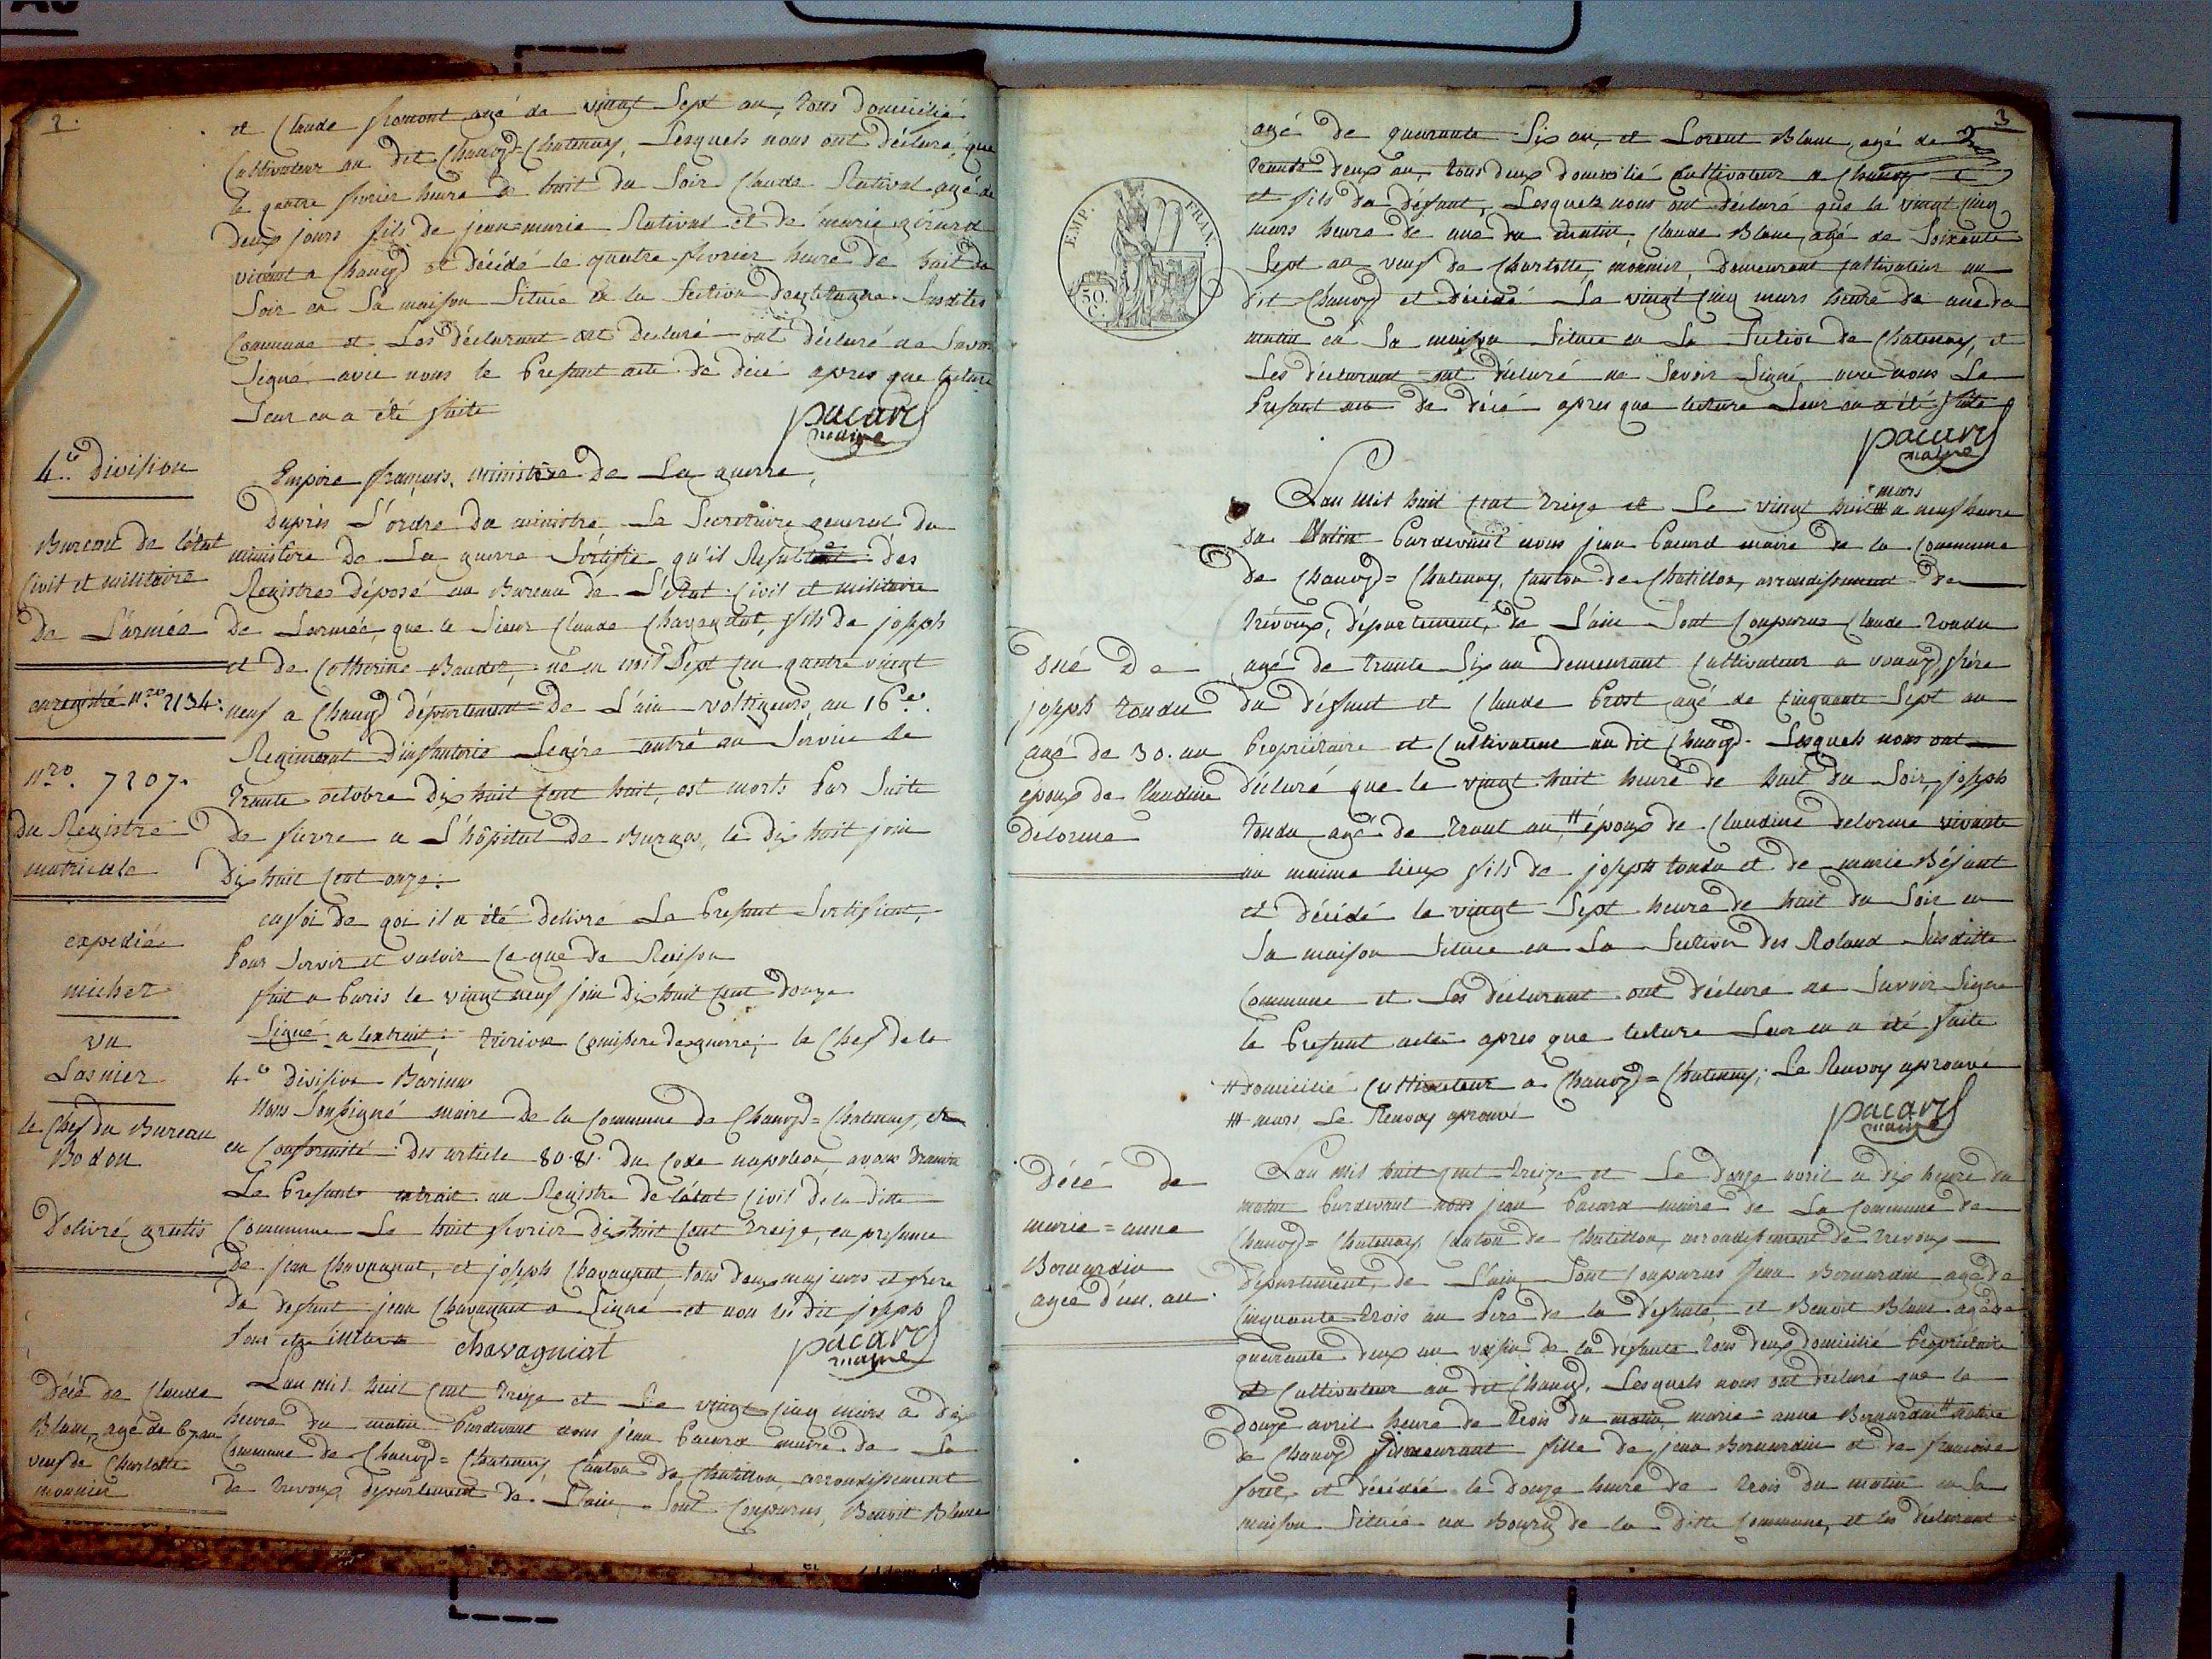 2.
et Claude fromont agé de vingt Sept an, tous domicilié
Cultivateur au dit Chaney-Chatenay, Lesquels nous ont déclaré, que
le quatre fevrier heure de huit du Soir Claude Rativat agé de
deux jours fils de jean=marie Rativat et de marie girard
vivant a Chaney et décédé le quatre fevrier heure de huit du
Soir en Sa maison Située en la Section Susdites
Commune et Les déclarant ont declaré ont déclaré ne Savoir
Signé avec nous le Present acte de décé apres que lecture
Leur en a été faite
pacard
maire
4.e Division
Bureau de l'état
Civil et militaire
De L'armée
enregistré nro 2134.
nro. 7207.
Du Registre
matricule
expediée
micher
vu
Lasnier
le Chef du Bureau
Bodon
Délivré gratis
Empire français. ministère De La guerre,
Daprès L'ordre Du ministre Le Secretaire general du
ministère De La guerre Sertifie qu'il Resulte des
Registres déposé au Bureau de L'état Civil et militaire
De Larmée, que le Sieur Claude Chavagnat, fils De joseph
et De Catherine Baudet, né en mil Sept Cen quatre vingt
neuf a Chaney département De L'ain voltigeurs au 16e.
Regiment D'infanterie Legére entré au Service le
trente octobre Dix huit Cent huit, est morts Par Suite
De fievre a L'hôpital De Burgos, le Dix huit juin
Dix huit Cent onze.
enfoi de qoi il a été delivré Le Present Sertificat,
Pour Servir et valoir Ce que De Raison
fait a Paris le vingt neuf juin Dix huit Cent Douze
Signé a lextrait; Comisere De guerre; le Chef de la
4.e Division Barnier
Nous Sousigné maire De la Commune de Chaney=Chatenay, et
en Conformité Des article 80.81. Du Code napoléon, avons transcri
Le Present extrait au Registre De létat Civil De la Ditte
Commune Le huit fevrier Dix huit Cent treize, en presence
De jean Chavagnat, et joseph Chavagnat, tous deux majeurs et frere
Du defunt jean Chavagnat a Signé et non le dit joseph
Pour etre illitere
chavagniat
pacard
maire
Décé de Claude
Blanc, agé de 67 an
veuf de Charlotte
monnier
Lan mil huit Cent treize et Le vingt Cinq mars a Dix
heure du matin Pardevant nous jean Pacard maire de La
Commune de Chaney=Chatenay Canton de Chatillon arrondissement
de trevoux département de L'ain, Sont Comparus, Benoit Blanc
3
EMP. FRAN.
50.
C.
agé de quarante Six an, et Lorent Blanc, agé de
trente deux an, tous deux domicilié Cultivateur a Chaney
et fils du défunt, Lesquels nous ont déclaré que le vingt Cinq
mars heure de une du matin, Claude Blanc, agé de Soixante
Sept an veuf de Charlotte, monnier, Demeurant Cultivateur au
dit Chaney et décédé Le vingt Cinq mars heure de une du
matin en Sa maison Située en La Section de Chatenay, et
Les déclarant ont déclaré ne Savoir Signé avec nous Le
Present acte de décé apres que lecture Leur en a été faite
pacard
maire
mars
Lan Mil huit Cent treize et Le vingt huit # a neuf heure
du Matin Pardevant nous jean Pacard maire De la Commune
De Chaney=Chatenay, Canton de Chatillon, arrondissement De
trévoux, département, de L'ain Sont Comparus Claude tondu
agé de trente Six an Demeurant Cultivateur a vonnas, frère
du défunt et Claude Prost agé de Cinquante Sept an
Propriétaire et Cultivateur au dit Chaney. Lesquels nous ont
déclaré que le vingt huit heure de huit du Soir, joseph
tondu agé de trent an, # époux de Claudine delorme vivante
au meime lieux fils de joseph tondu et de marie Béjant
et décédé le vingt Sept heure de huit du Soir en
Sa maison Située en La Section des Roland Susditte
Commune et Les déclarant ont déclaré ne Savoir Signe
le Present acte apres que lecture Leur en a été faite
# Domicilié Cultivateur a Chaney=Chatenay, Le Renvoy aprouve
# mars Le Renvoy aprouvé
pacard
maire
Décé De
joseph tondu
agé de 30. an
epoux de Claudine
Delorme
Décé de
marie=anne
Bernardin
agée d'un. an.
Lan Mil huit Cent treize et Le Douze avril a dix heure du
matin Pardevant nous jean Pacard maire de La Commune de
Chaney=Chatenay Canton de Chatillon, arrondissement de trevoux
Département, de L'ain Sont Comparus Jean Bernardin agé de
Cinquante trois an Pere de la défunte, et Benoit Blanc agé de
quarante deux an voisin de la défunte tous deux domicilié Propriétaire
et Cultivateur au dit Chaney. Lesquels nous ont déclaré que le
Douze avril heure de trois du matin, marie=anne Bernardin # native
de Chaney Demeurant fille de jean Bernardin et de francoise
et décédée le Douze heure de trois du matin en Sa
maison Située au Bourg de la Ditte Commune, et les déclarant